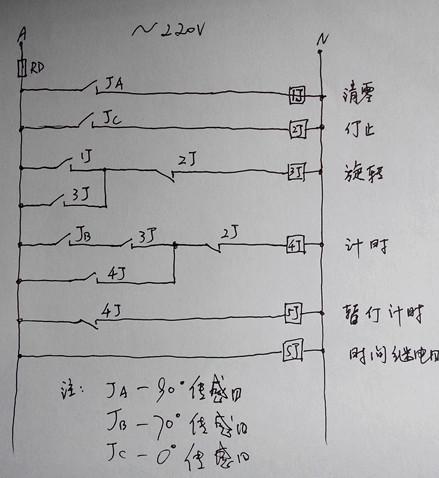 ~220V
A N
RD
JA 1J 清零
JC 2J 停止
1J 2J 3J 旋转
3J
JB 3J 2J 4J 计时
4J
4J 5J 暂停计时
5J 时间继电器
注: JA - 90° 传感器
JB - 70° 传感器
JC - 0° 传感器